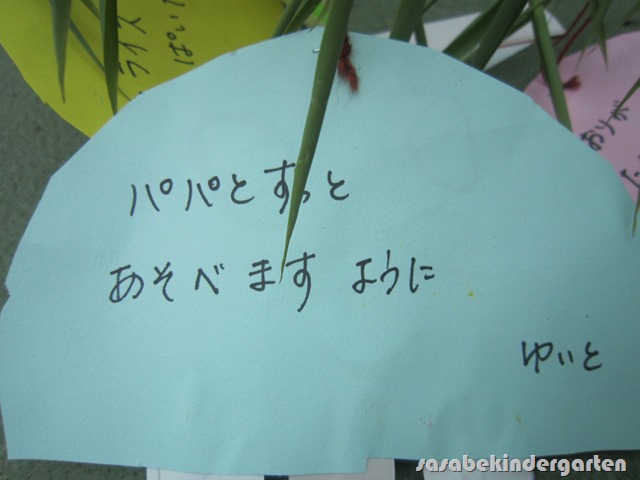 パパとずっと
あそべますように
ゆいと
sasabekindergarten